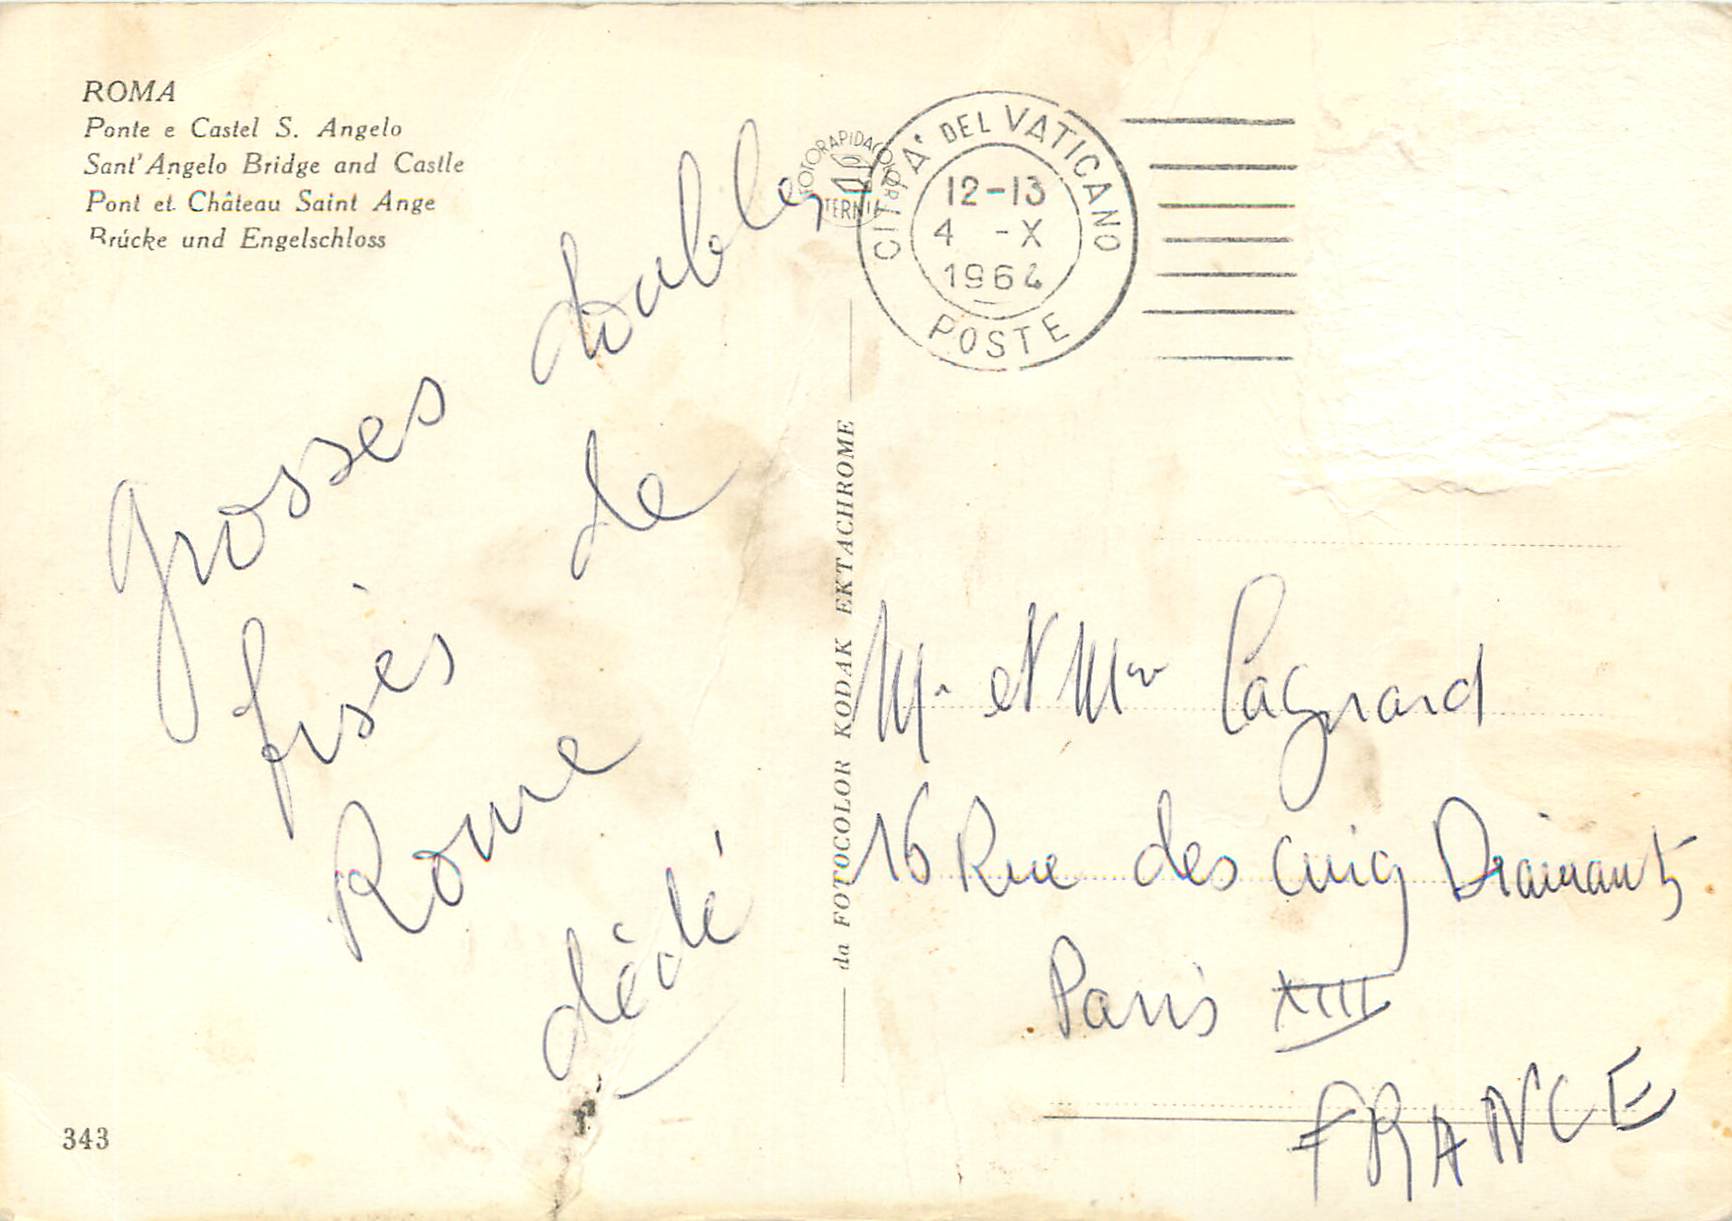 ROMA
Ponte e Castel S. Angelo
Sant'Angelo Bridge and Castle
Pont et Château Saint Ange
Brücke und Engelschloss
FOTORAPIDACOLOR
TERNI
CITTA' DEL VATICANO
12-13
4 -X
1964
POSTE
Grosses doubles
bises de
Rome
dédé
da FOTOCOLOR KODAK EKTACHROME
Mr et Mme Cagnard
16 Rue des Cinq Diamants
Paris XIII
FRANCE
343